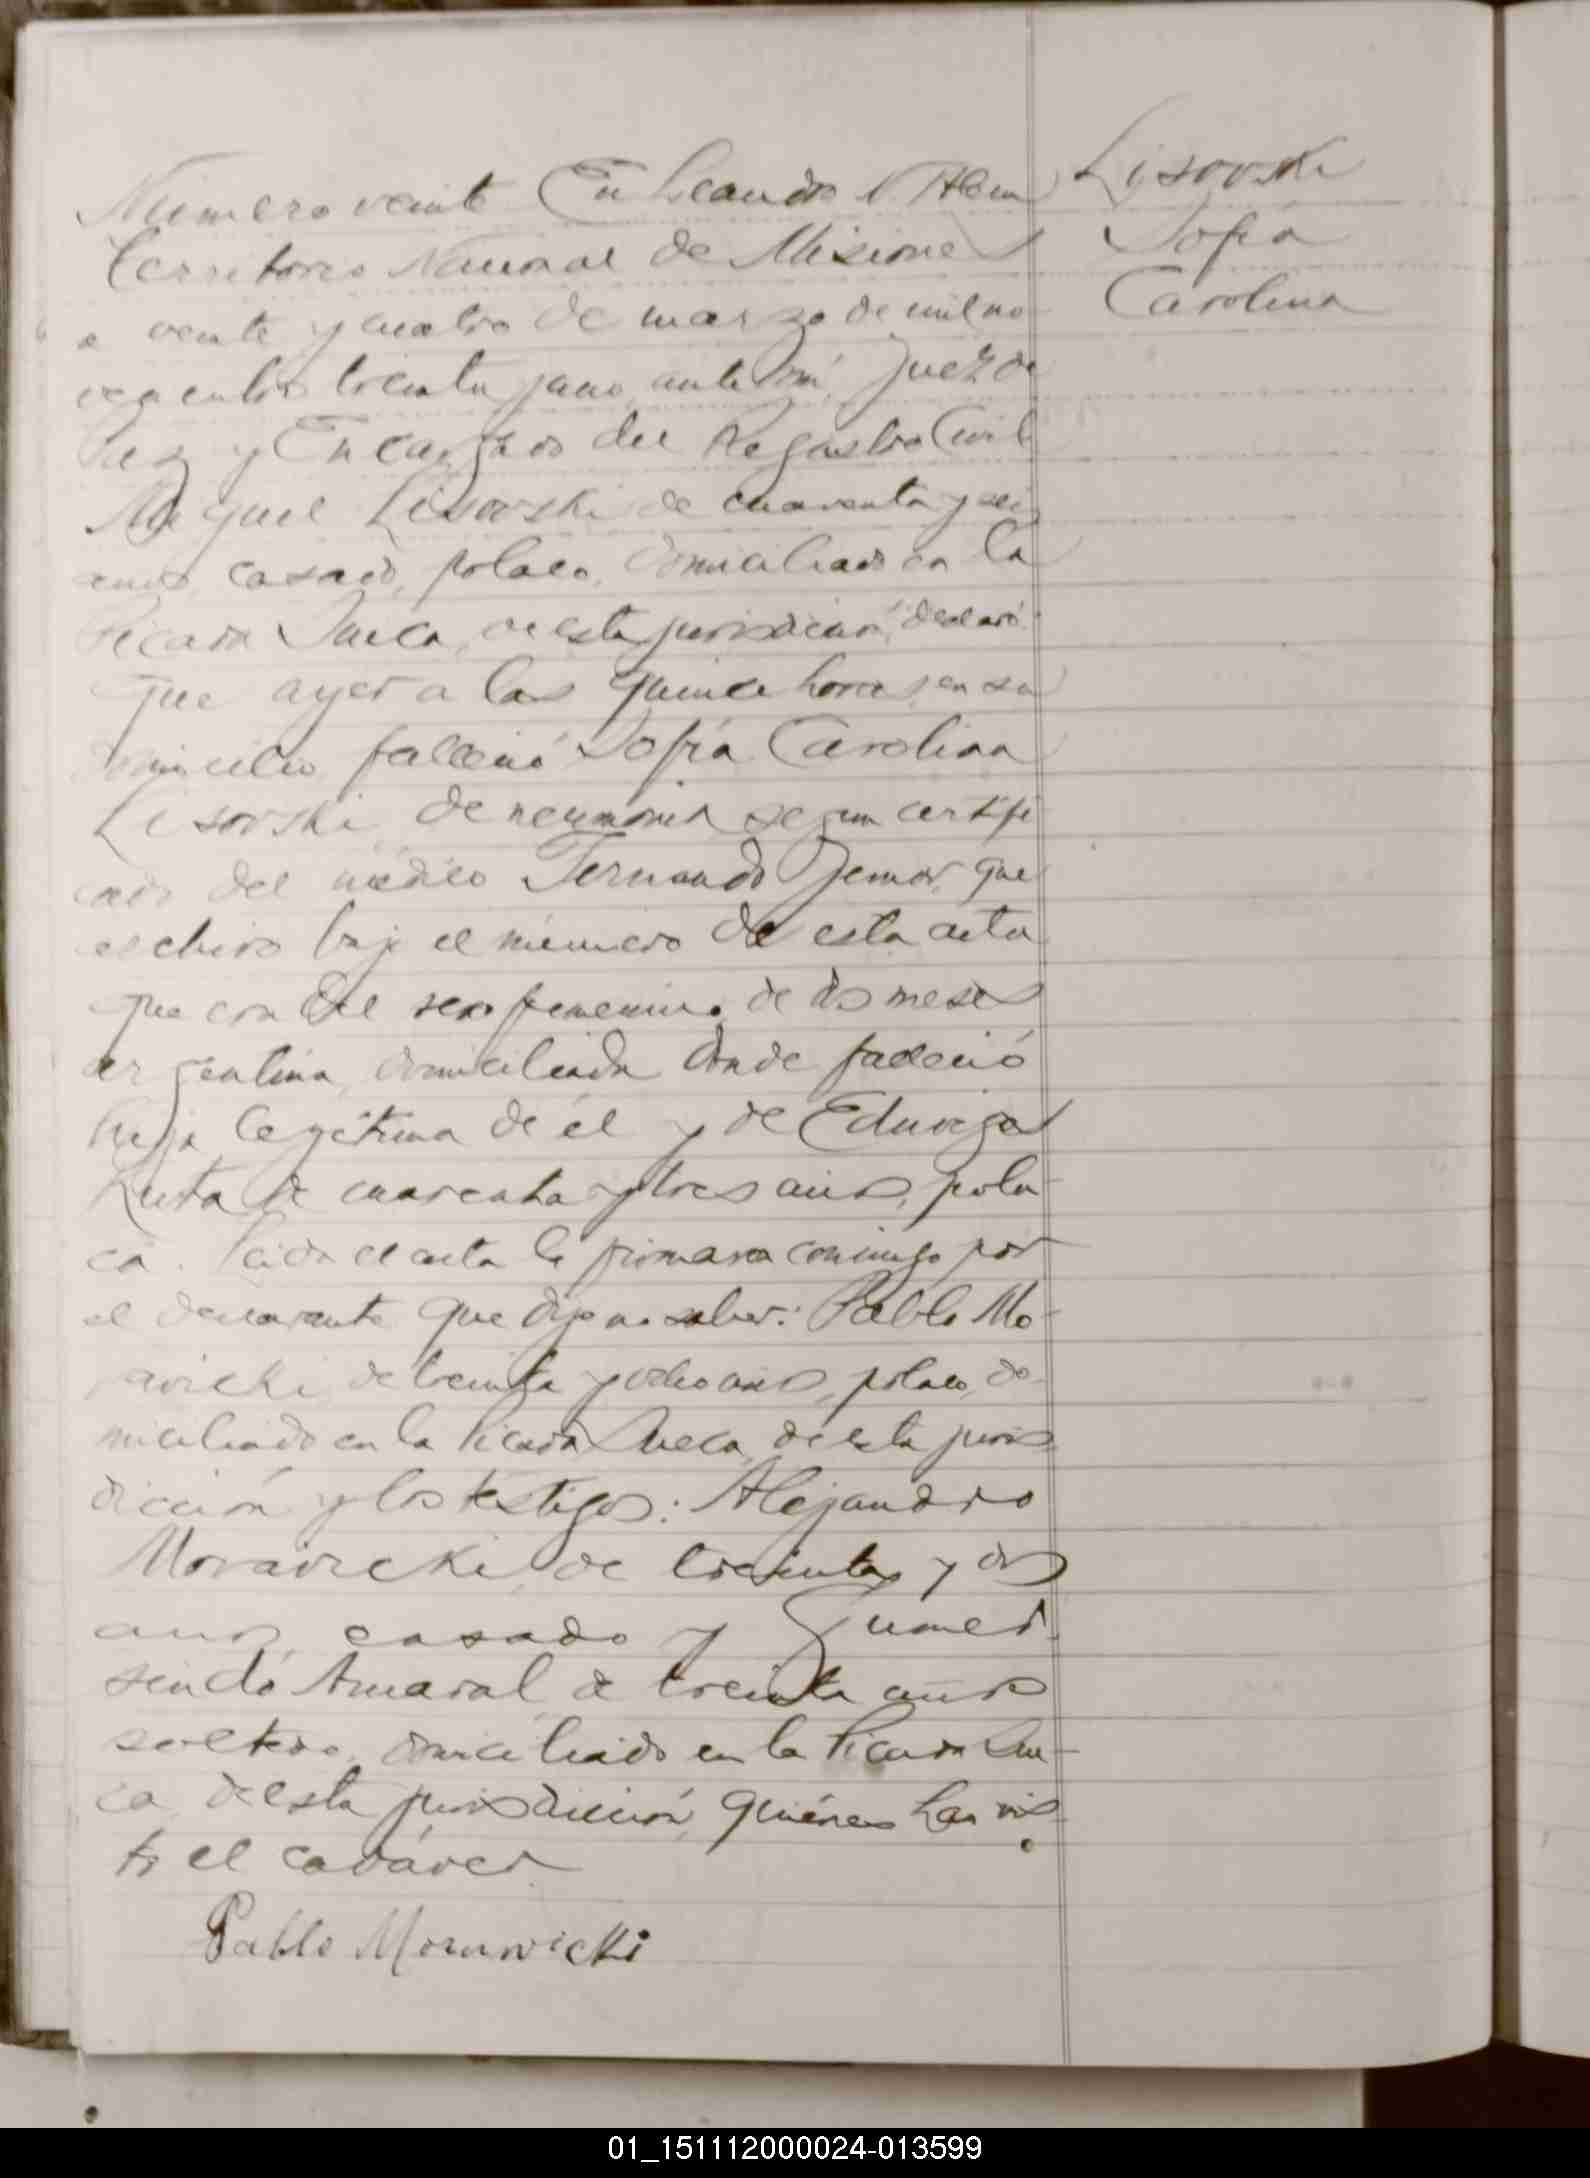 Número veinte En Leandro N Alem
Territorio Nacional de Misiones
a veinte y cuatro de marzo de mil no-
vecientos treinta y uno, ante mí, Juez de
Paz y Encargado del Registro Civil
Miguel Lisovski de cuarenta y seis
anos, casado, polaco, domiciliado en la
Picada Sueca, de esta jurisdicción, declaró:
que ayer a las quince horas, en su
domicilio falleció Sofía Carolina
Lisovski, de neumonia segun certifi
cado del médico Fernando que
archivo bajo el número de esta acta
que era del sexo femenino, de dos meses
argentina, domiciliada donde falleció
hija legítima de él y de Eduviges
de cuarenta y tres anos, pola-
ca. Leida el acta la firmara conmigo por
el declarante que dijo no saber: Pablo Mo-
ravicki, de treinta y ocho anos, polaco, do-
miciliado en la Picada Sueca, de esta juris
dicción y los testigos: Alejandro
Moravicki, de treinta y dos
anos, casado y Gumer-
sindo Amaral, de treinta anos
soltero, domiciliado en la Picada Sue-
ca, de esta jurisdicción, quiénes han vis-
to el cadáver
Pablo Morawicki
Lisovski
Sofía
Carolina
01_151112000024-013599